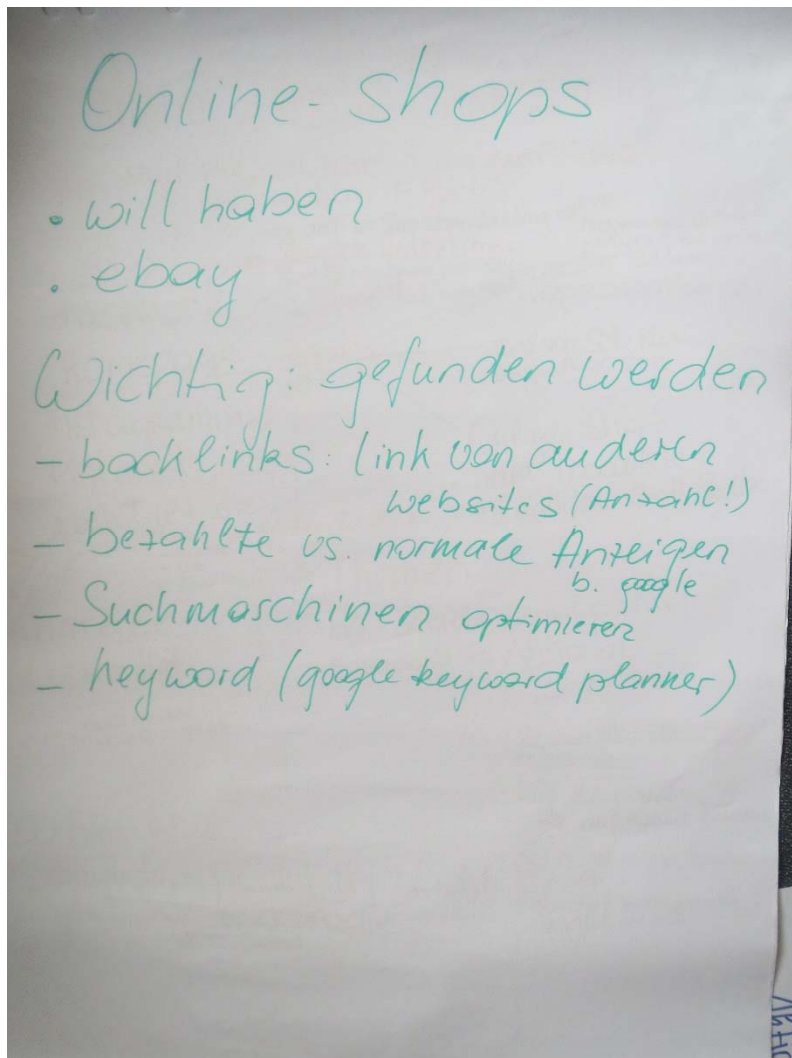 Online-shops
• will haben
• ebay
Wichtig: gefunden werden
- backlinks: link von anderen
websites (Anzahl!)
- bezahlte vs. normale Anzeigen
b. google
- Suchmaschinen optimieren
- keyword (google keyword planner)